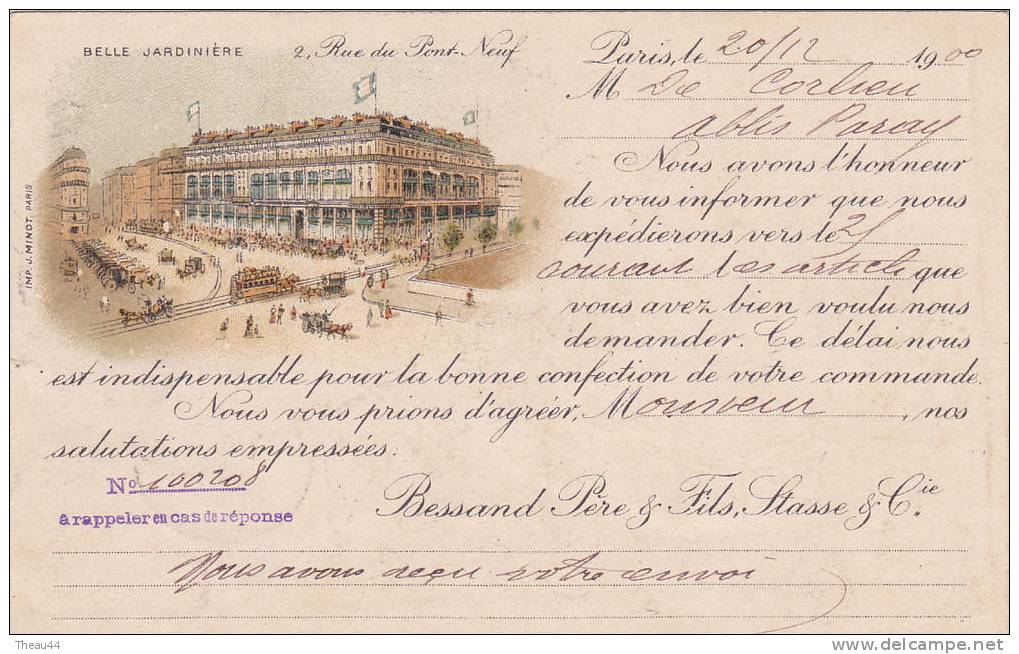 BELLE JARDINIÈRE 2, Rue du Pont-Neuf
Paris, le 20/12 1900
M De Corlieu
Ablis Paray
Nous avons l'honneur
de vous informer que nous
expédierons vers le 25
courant les article que
vous avez bien voulu nous
demander. Ce délai nous
est indispensable pour la bonne confection de votre commande.
Nous vous prions d'agréer, Monsieur, nos
salutations empressées.
No 100208
à rappeler en cas de réponse
Bessand Père & Fils, Stasse & Cie.
Nous avons reçu votre envoi
IMP. J. MINOT. PARIS
Theau44
delcampe.net